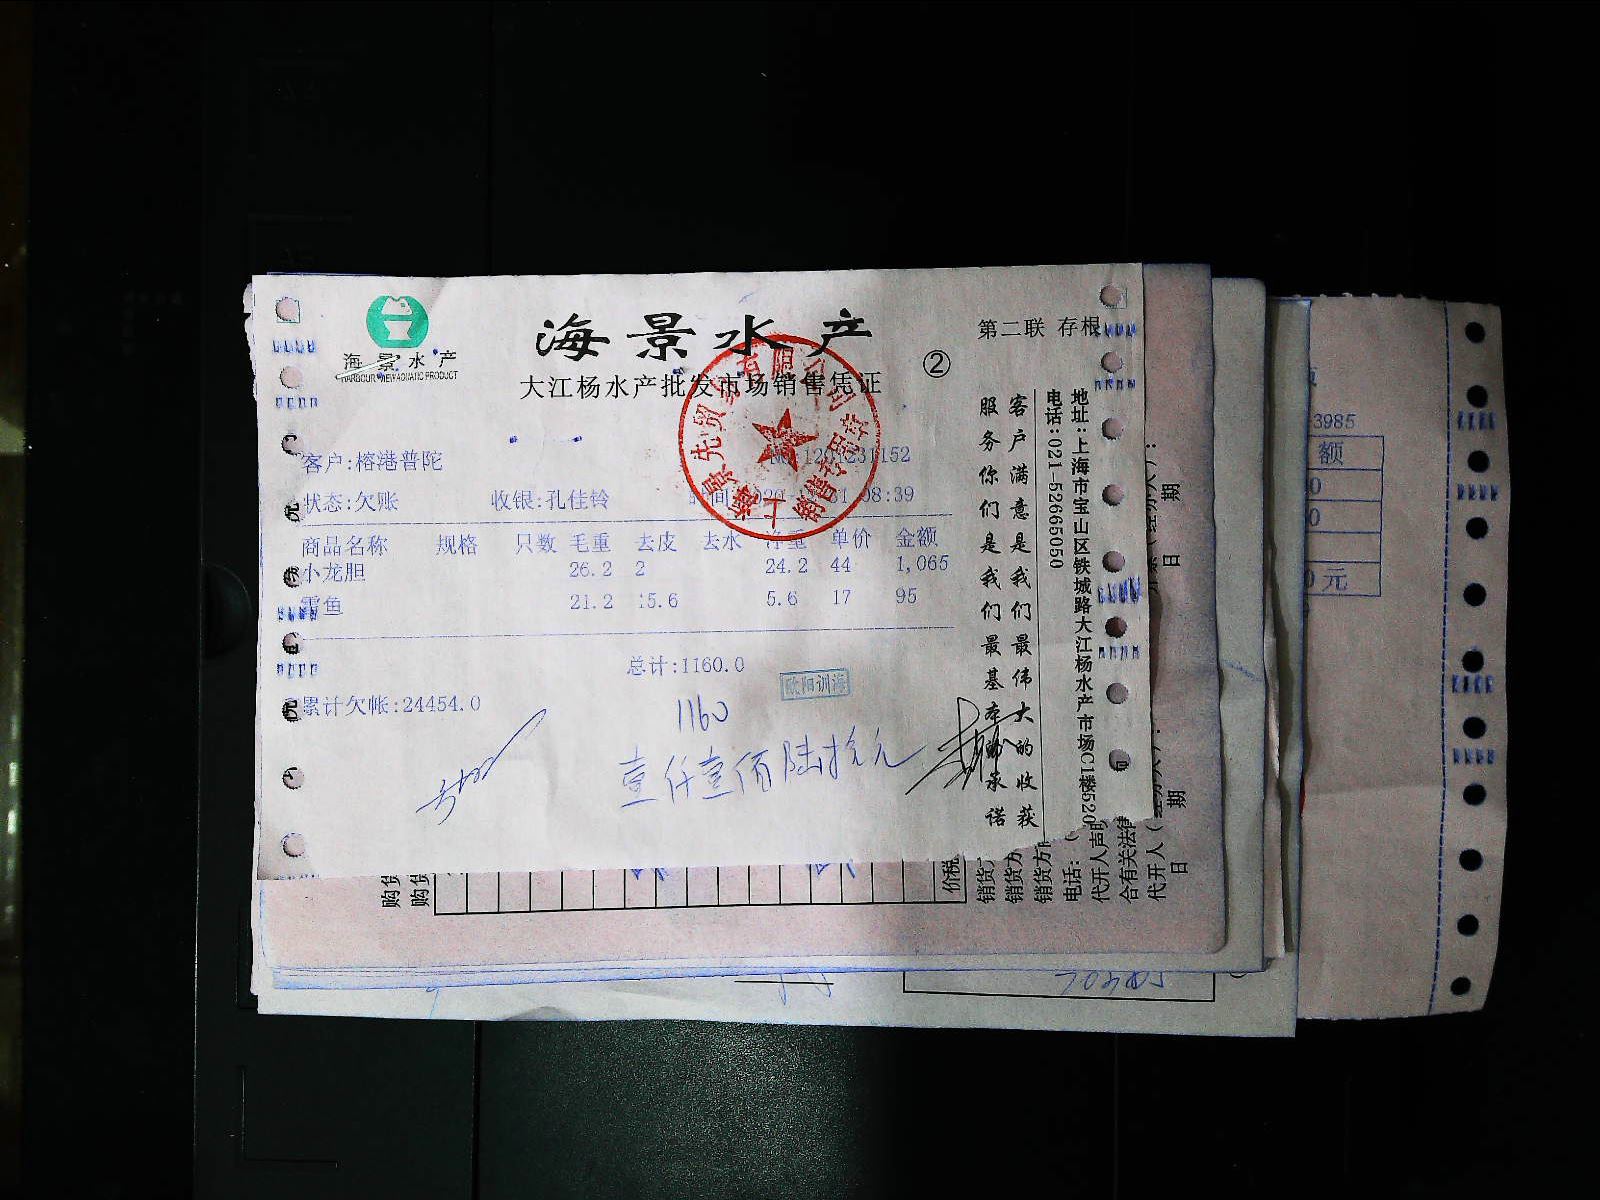 海景水产
HARBOUR VIEW AQUATIC PRODUCT
海景水产
大江杨水产批发市场销售凭证
②
第二联 存根
客户:榕港普陀
状态:欠账 收银:孔佳铃 08:39
商品名称 规格 只数 毛重 去皮 去水 净重 单价 金额
小龙胆 26.2 2 24.2 44 1,065
鱼 21.2 15.6 5.6 17 95
总计:1160.0
累计欠帐:24454.0
欧阳训海
1160
壹仟壹佰陆拾元
客户满意是我们最伟大的收获
服务你们是我们最基本的承诺
地址:上海市宝山区铁城路大江杨水产市场C1楼520
电话:021-52665050
购货
购货
价税
销货方
销货方
销货方
电话:(
代开人声明
含有关法律
代开人(
日 期
日 期
3985
额
0
0
0元